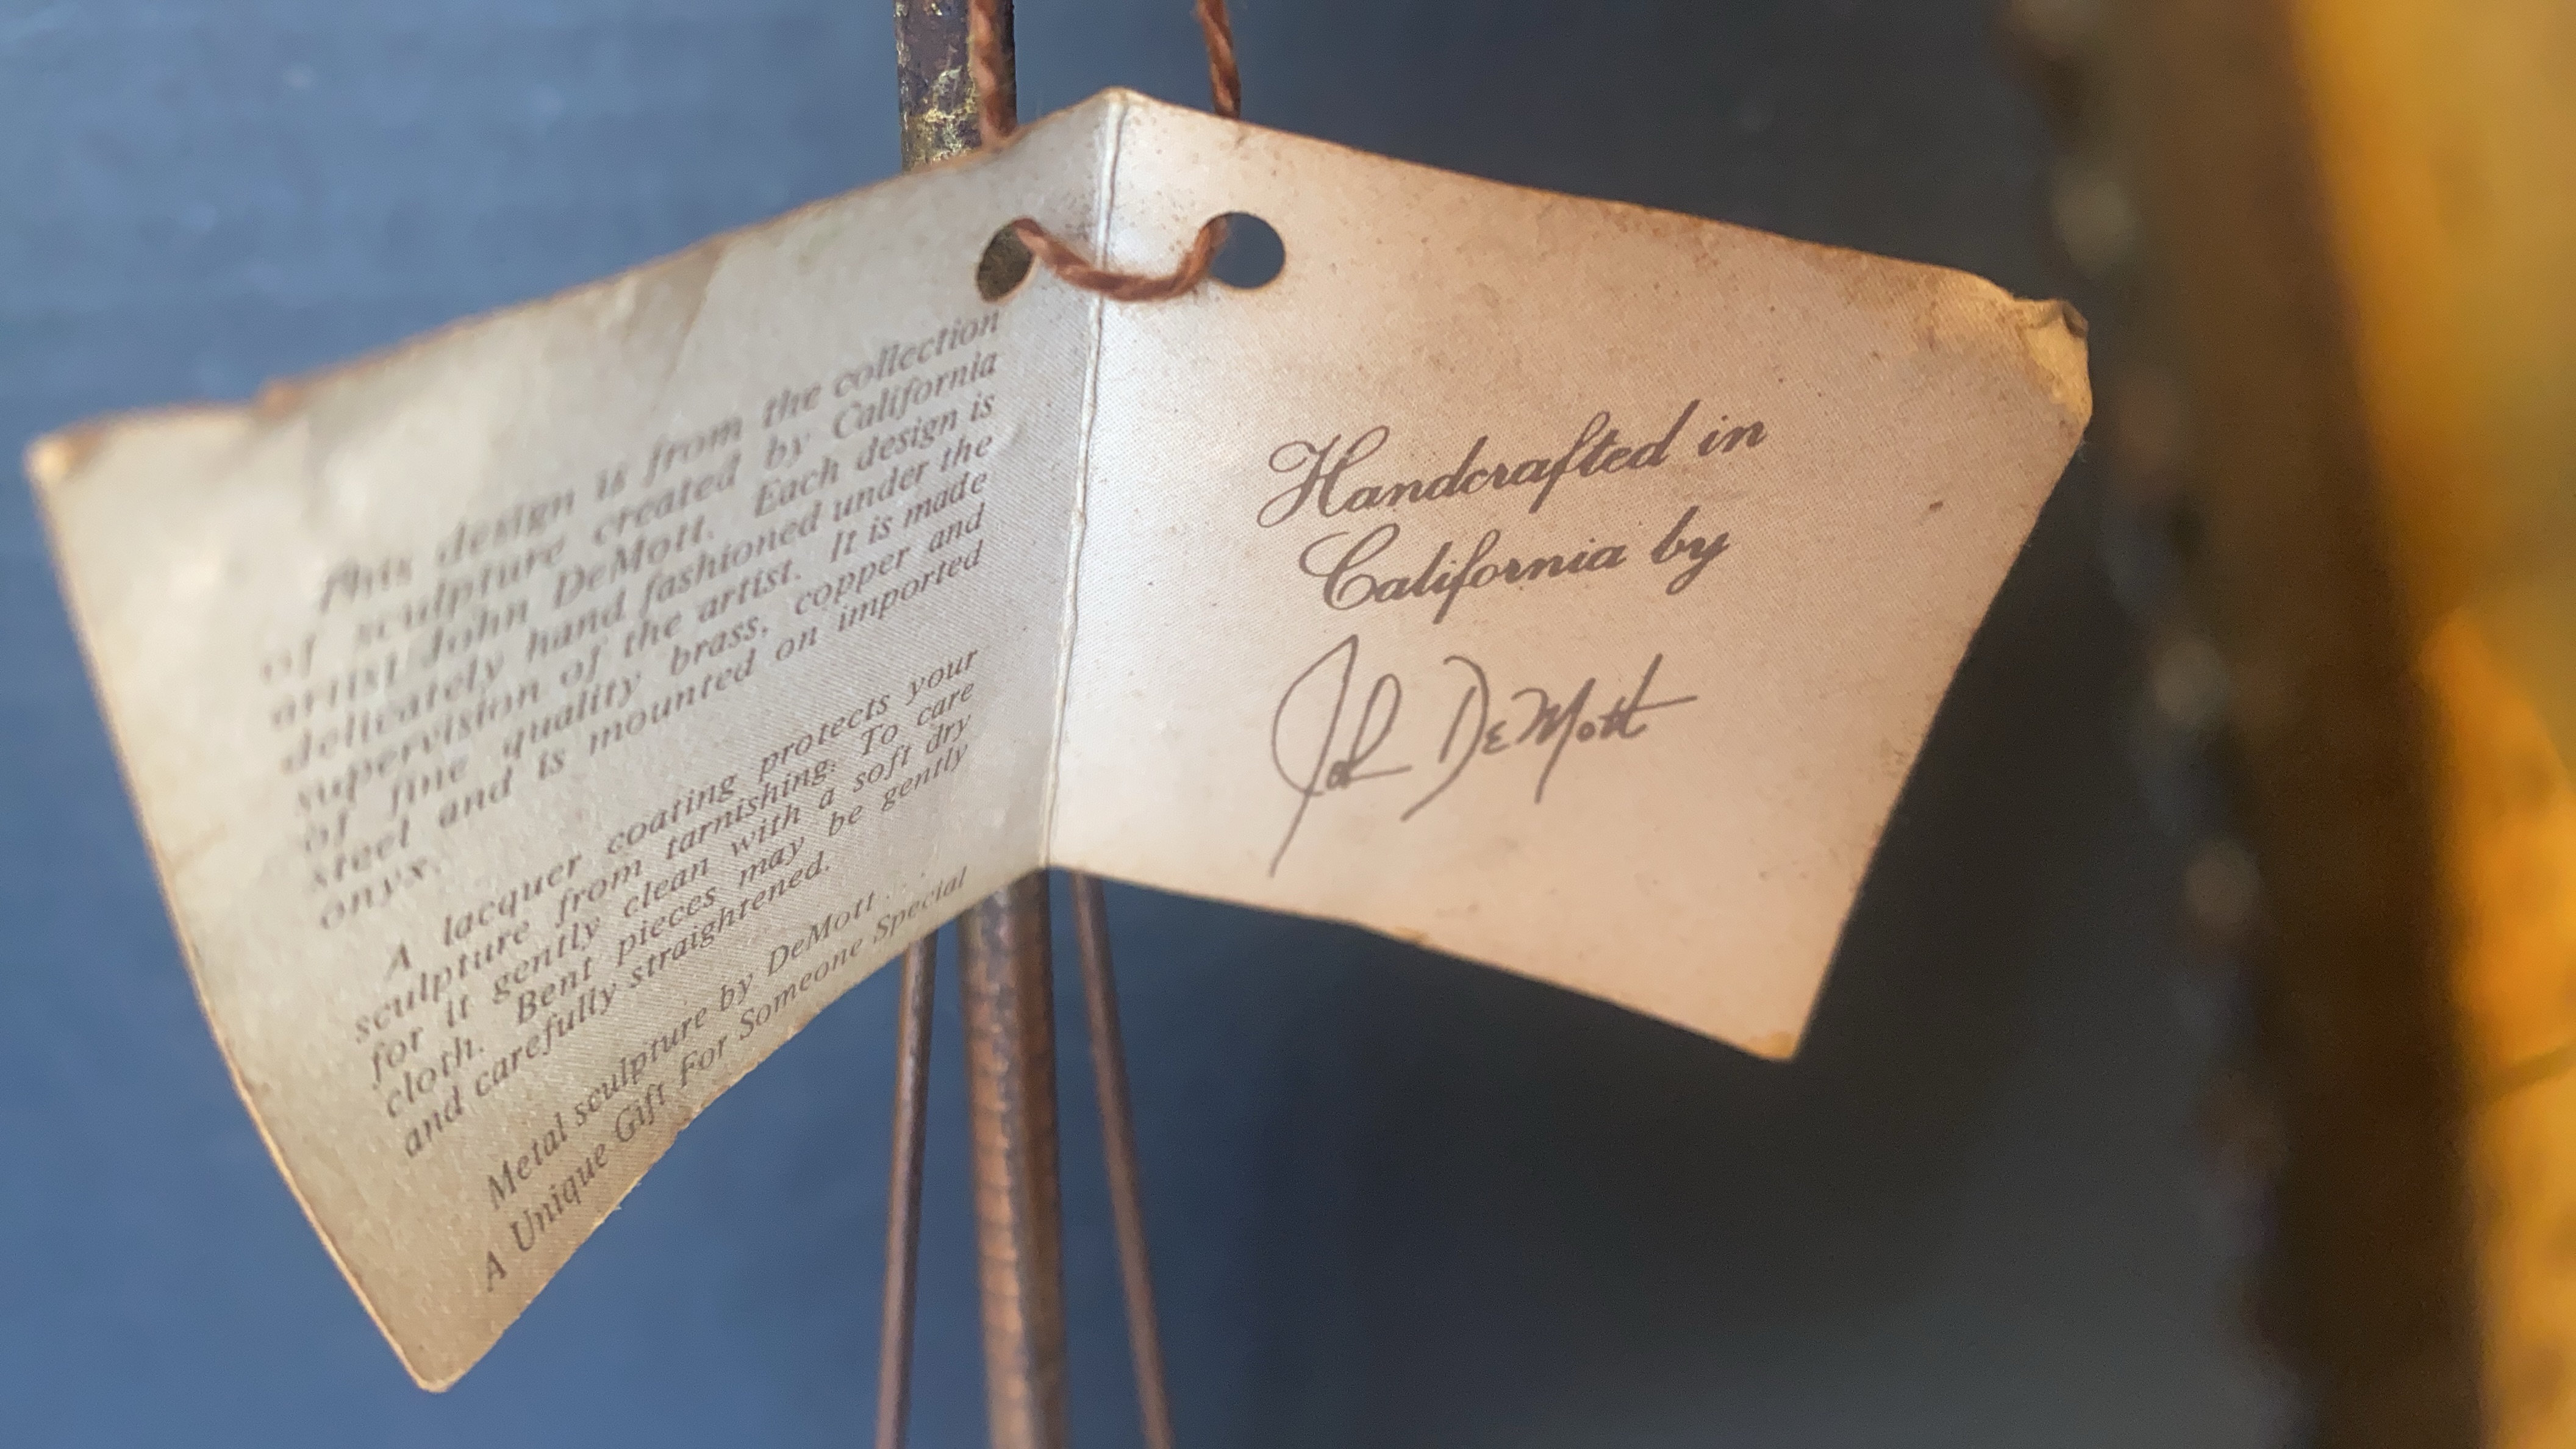 This design is from the collection
of sculpture created by California
artist John DeMott. Each design is
delicately hand fashioned under the
supervision of the artist. It is made
of fine quality brass, copper and
steel and is mounted on imported
onyx.
A lacquer coating protects your
sculpture from tarnishing. To care
for it gently clean with a soft dry
cloth. Bent pieces may be gently
and carefully straightened.
Metal sculpture by DeMott . . .
A Unique Gift For Someone Special
Handcrafted in
California by
John DeMott